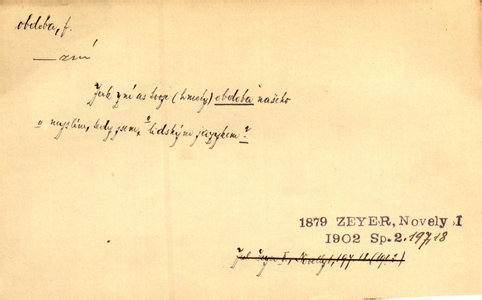 obdoba, f.
— zní
Jak zní as tvoje (hmoty) obdoba našeho
„myslím, tedy jsem“ lidským jazykem?
1879 ZEYER, Novely I
1902 Sp. 2. 197,18